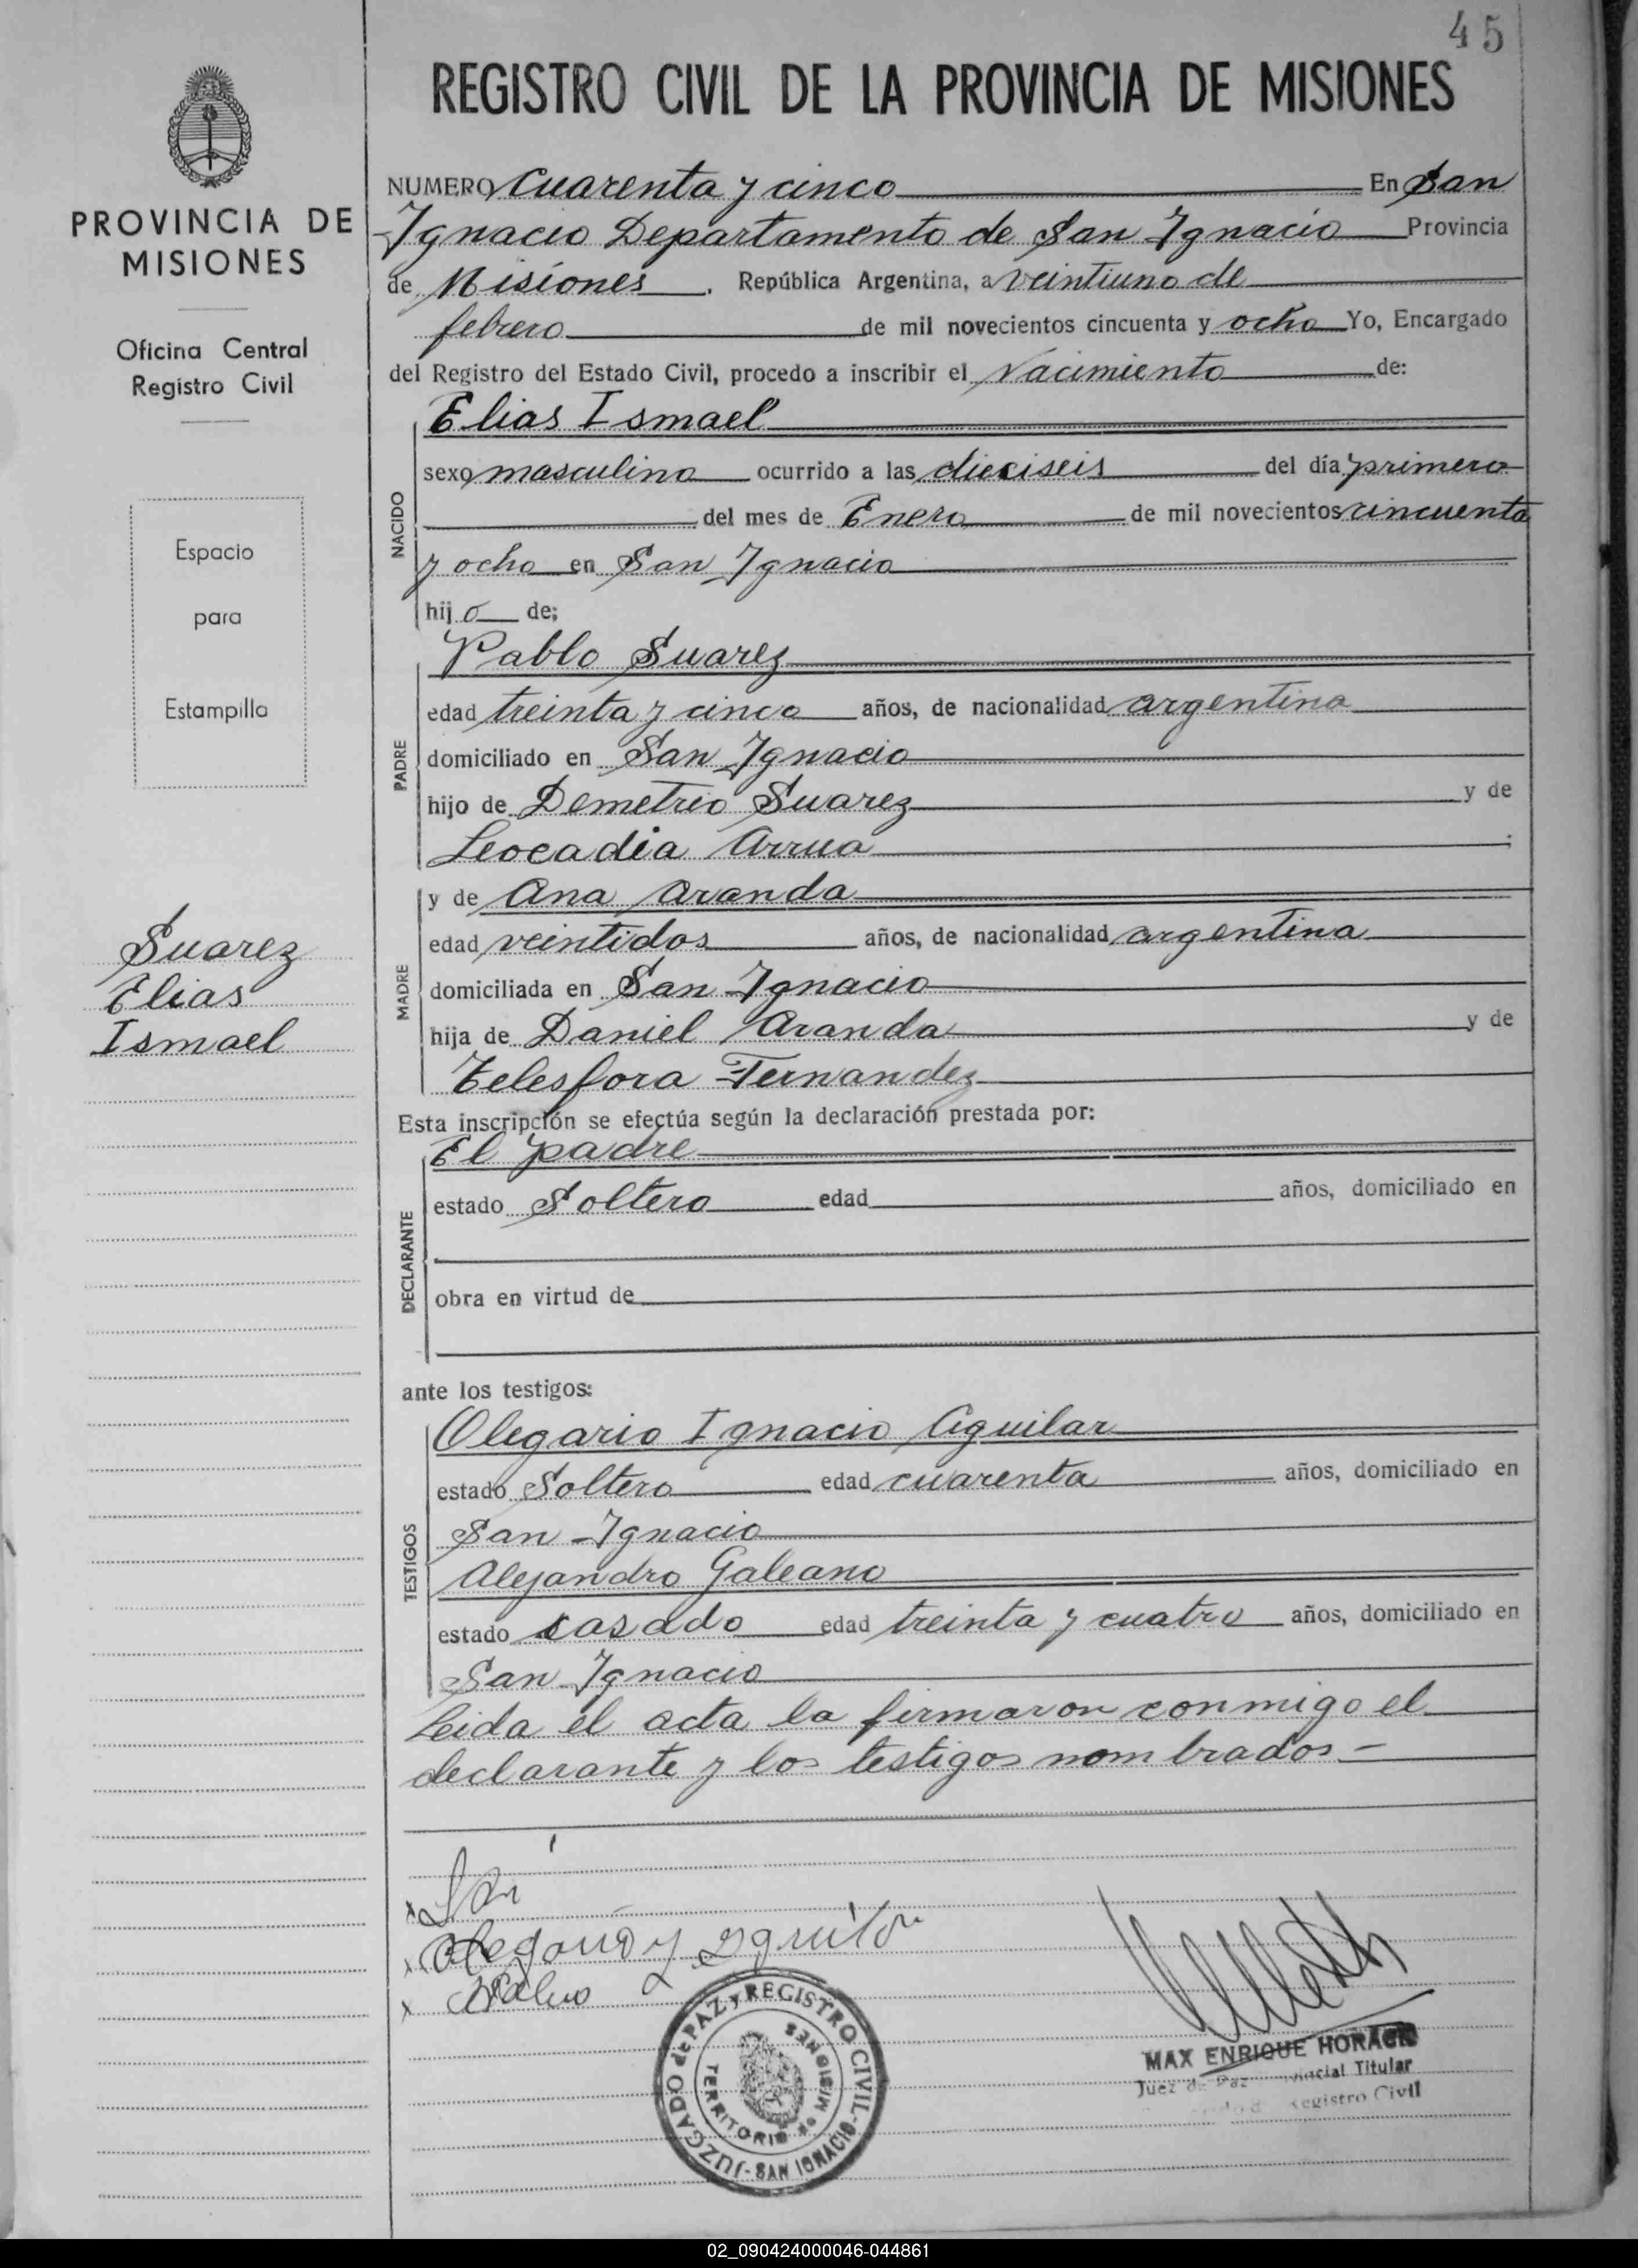 45
REGISTRO CIVIL DE LA PROVINCIA DE MISIONES
PROVINCIA DE
MISIONES
Oficina Central
Registro Civil
Espacio
para
Estampilla
Suarez
Elias
Ismael
NUMERO Cuarenta y cinco En San
Ignacio Departamento de San Ignacio Provincia
de Misiones. República Argentina, a veintiuno de
febrero de mil novecientos cincuenta y ocho Yo, Encargado
del Registro del Estado Civil, procedo a inscribir el Nacimiento de:
NACIDO
Elias Ismael
sexo masculino ocurrido a las dieciseis del día primero
del mes de Enero de mil novecientos cincuenta
y ocho en San Ignacio
hijo de;
PADRE
Pablo Suarez
edad treinta y cinco años, de nacionalidad argentina
domiciliado en San Ignacio
hijo de Demetrio Suarez y de
Leocadia Arrua;
MADRE
y de Ana Aranda
edad veintidos años, de nacionalidad argentina
domiciliada en San Ignacio
hija de Daniel Aranda y de
Telesfora Fernandez
Esta inscripción se efectúa según la declaración prestada por:
DECLARANTE
El padre
estado Soltero edad años, domiciliado en
obra en virtud de
ante los testigos:
TESTIGOS
Olegario Ignacio Aguilar
estado Soltero edad cuarenta años, domiciliado en
San Ignacio
Alejandro Galeano
estado casado edad treinta y cuatro años, domiciliado en
San Ignacio
Leida el acta la firmaron conmigo el
declarante y los testigos nombrados -
JUZGADO de PAZ y REGISTRO CIVIL
- SAN IGNACIO -
TERRITORIO
MISIONES
MAX ENRIQUE HORACIO
Juez de Paz Titular
Registro Civil
02_090424000046-044861